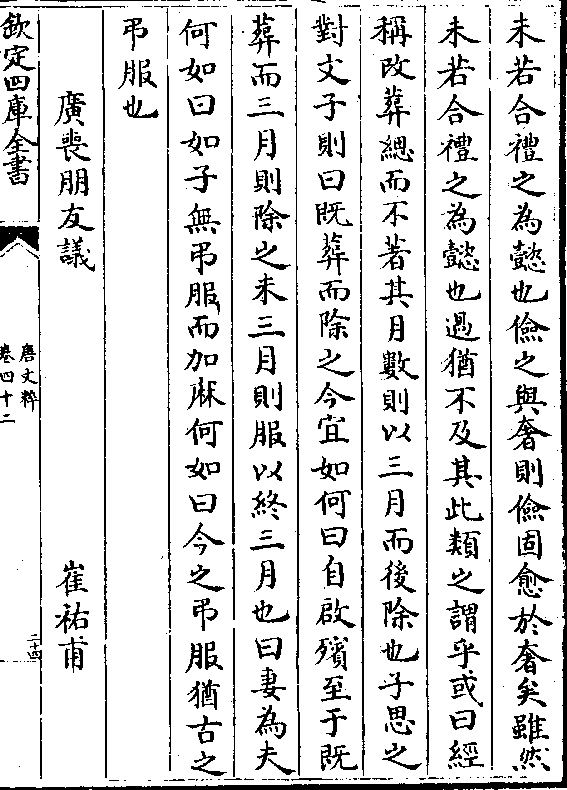 未若合禮之為懿也儉之與奢則儉固愈於奢矣雖然
未若合禮之為懿也過猶不及其此類之謂乎或曰經
稱改葬緦而不著其月數則以三月而後除也子思之
對文子則曰既葬而除之今宜如何曰自啟殯至于既
葬而三月則除之未三月則服以終三月也曰妻為夫
何如曰如子無弔服而加麻何如曰今之弔服猶古之
弔服也
廣喪朋友議 崔祐甫
欽定四庫全書
唐文粹
卷四十二
二十四